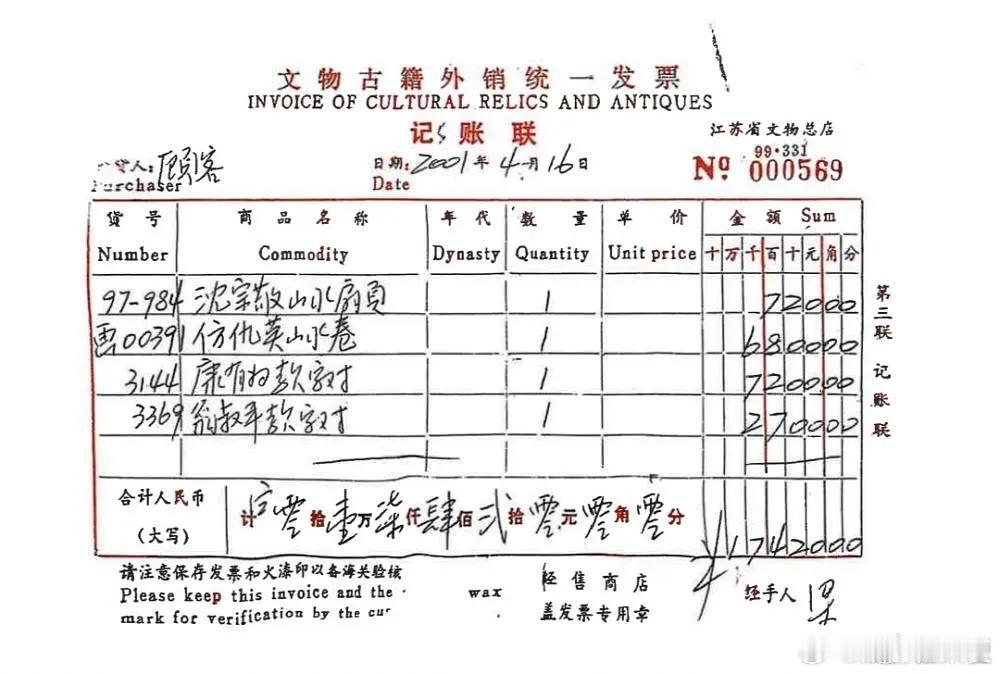 文物古籍外销统一发票
INVOICE OF CULTURAL RELICS AND ANTIQUES
记账联
江苏省文物总店
99·331
No 000569
货人: 顾客
Purchaser
日期: 2001年4月16日
Date
货号 商品名称 年代 数量 单价 金额 Sum
Number Commodity Dynasty Quantity Unit price 十万千百十元角分
97-984 沈宗敬山水扇页 1 72000
画00391 仿仇英山水卷 1 680000
3144 康有为款字对 1 720000
3369 翁叔平款字对 1 270000
第三联 记账联
合计人民币
(大写)
计 零拾壹万柒仟肆佰贰拾零元零角零分 ¥1742000
请注意保存发票和火漆印以备海关验核
Please keep this invoice and the wax
mark for verification by the
经售商店
盖发票专用章
经手人